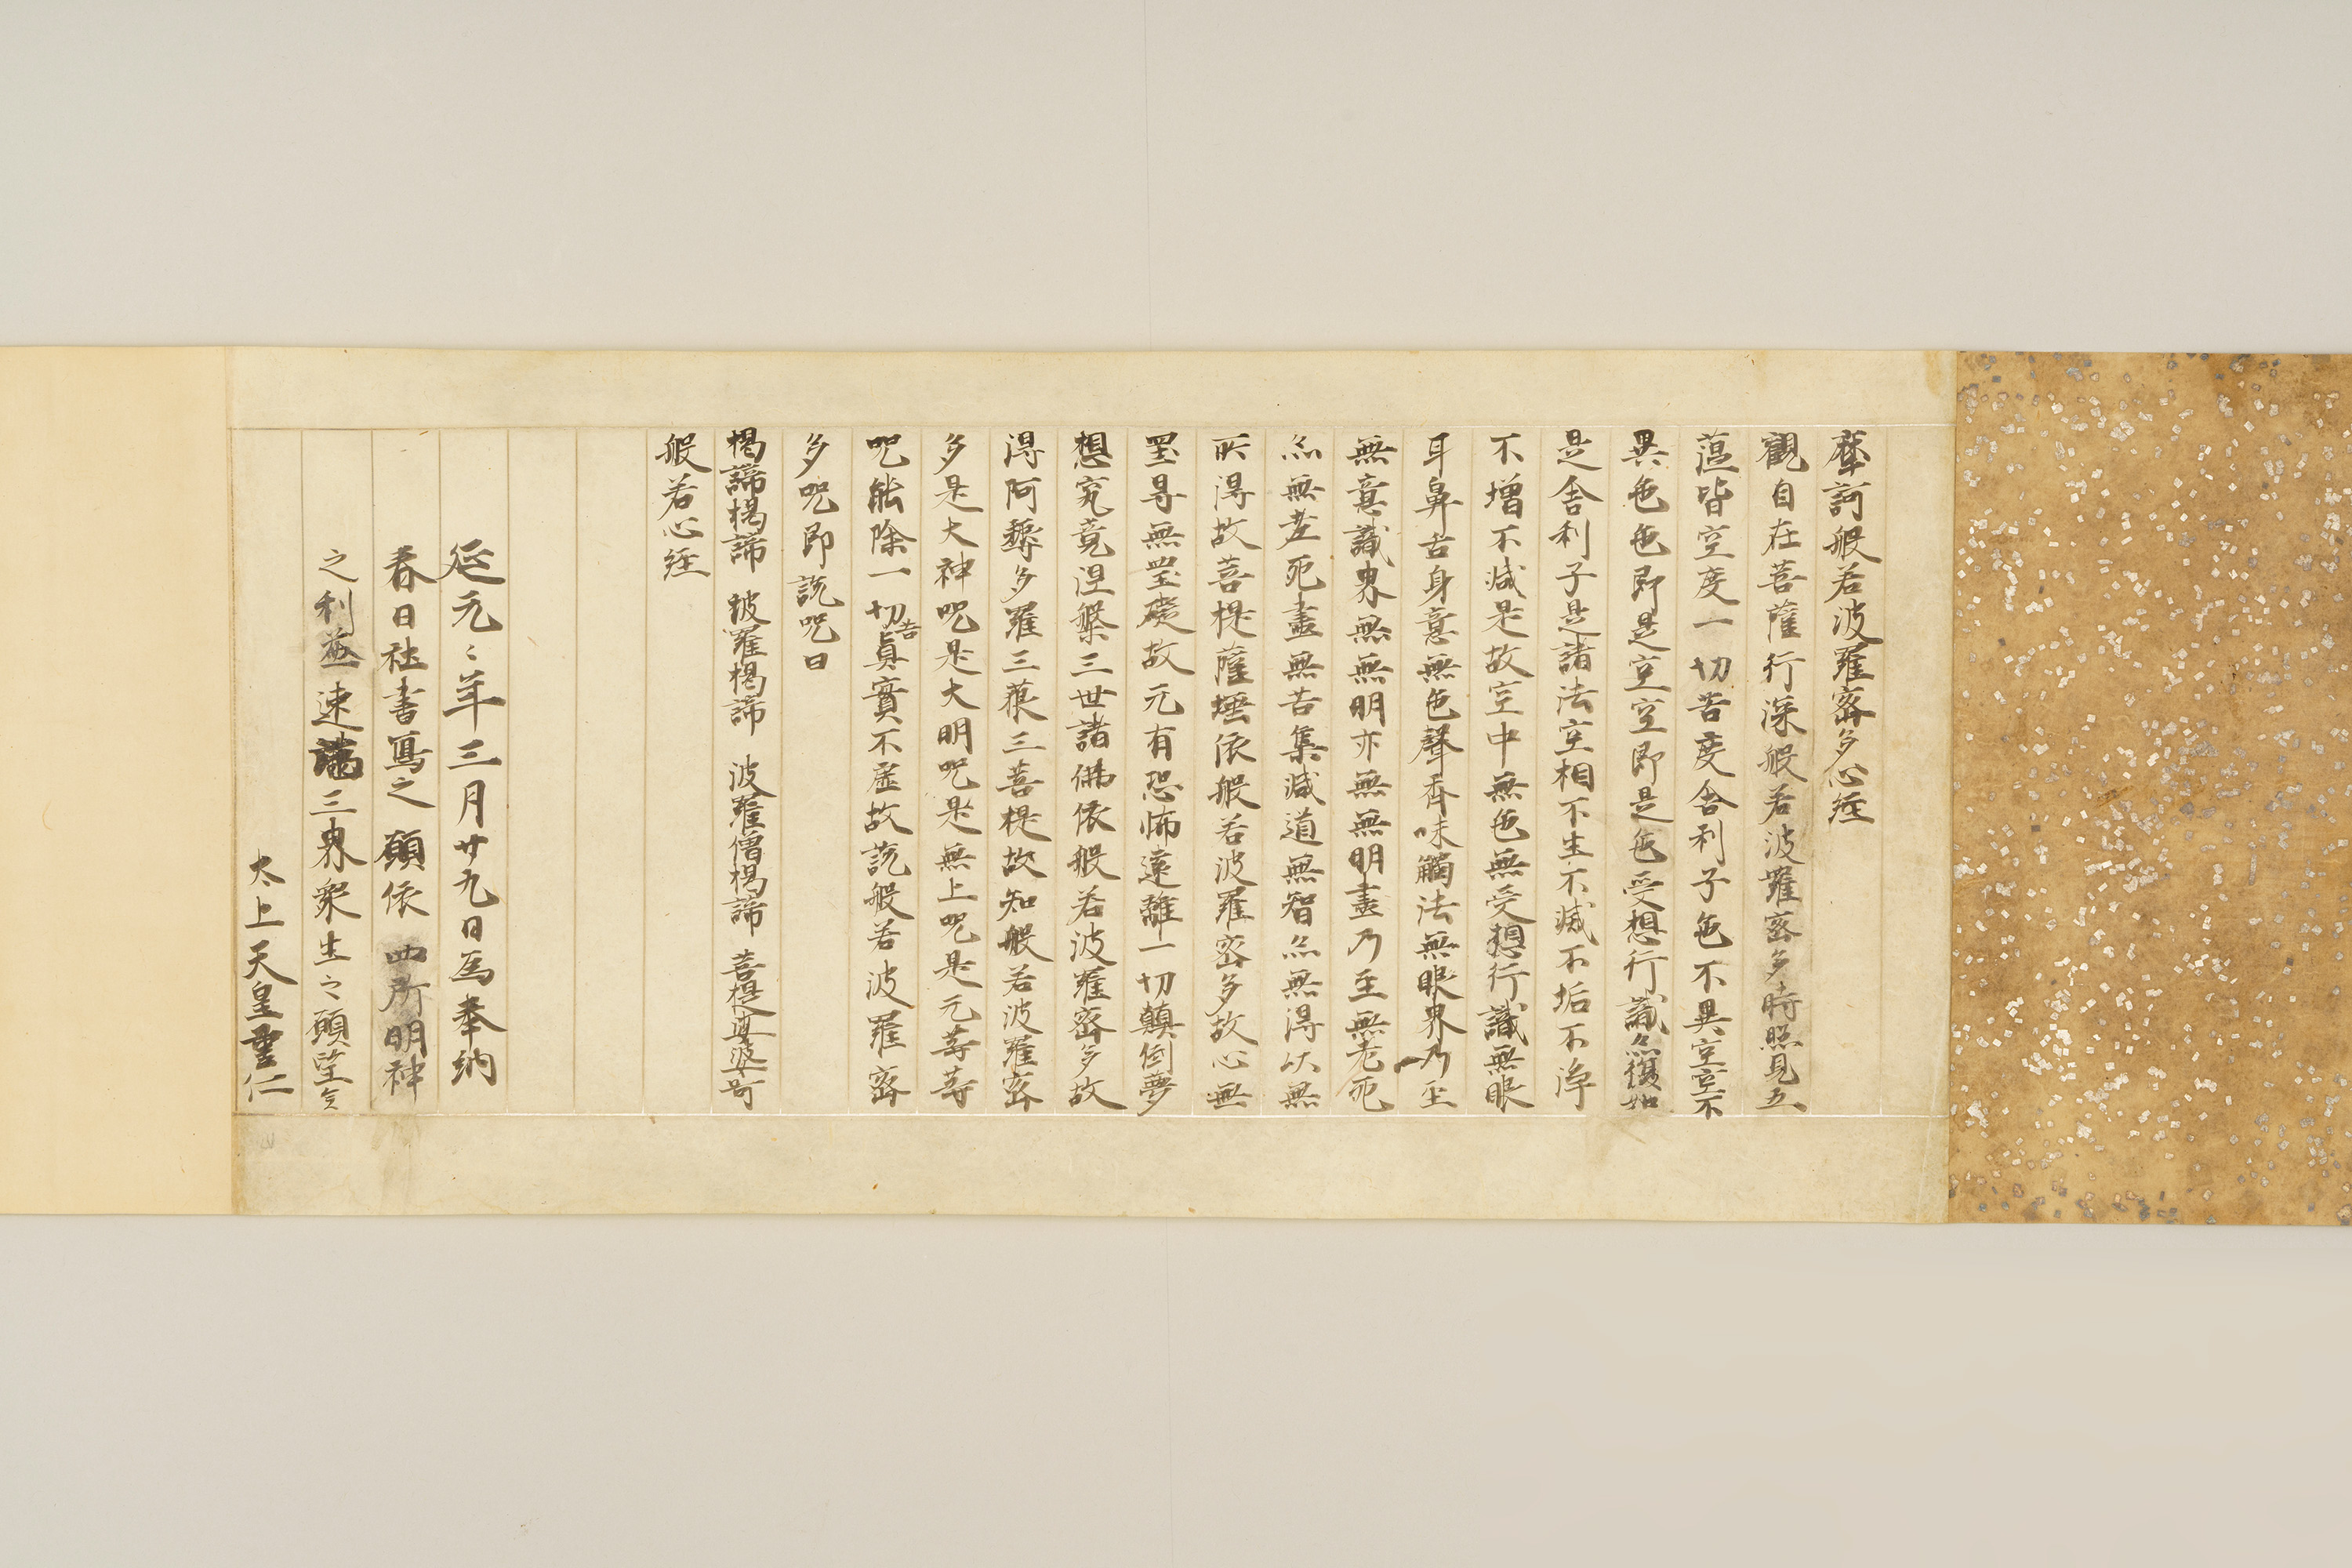 摩訶般若波羅蜜多心經
觀自在菩薩行深般若波羅蜜多時照見五
蕰皆空度一切苦度舎利子色不異空空不
異色色即是空空即是色受想行識亦復如
是舎利子是諸法空相不生不滅不垢不浄
不增不減是故空中無色無受想行識無眼
耳鼻舌身意無色聲香味觸法無眼界乃至
無意識界無無明亦無無明盡乃至無老死
亦無老死盡無苦集滅道無智亦無得以無
所得故菩提薩埵依般若波羅蜜多故心無
罣㝵無罣礙故无有恐怖遠離一切顛倒夢
想究竟涅槃三世諸佛依般若波羅蜜多故
得阿耨多羅三藐三菩提故知般若波羅蜜
多是大神呪是大明呪是無上呪是无等等
呪能除一切苦真實不虛故說般若波羅蜜
多呪即說呪曰
揭諦揭諦 波羅揭諦 波羅僧揭諦 菩提娑婆訶
般若心經
延元〻年三月廿九日為奉納
春日社書寫之 願依 四所明神
之利益速満三界衆生之願望矣
太上天皇量仁